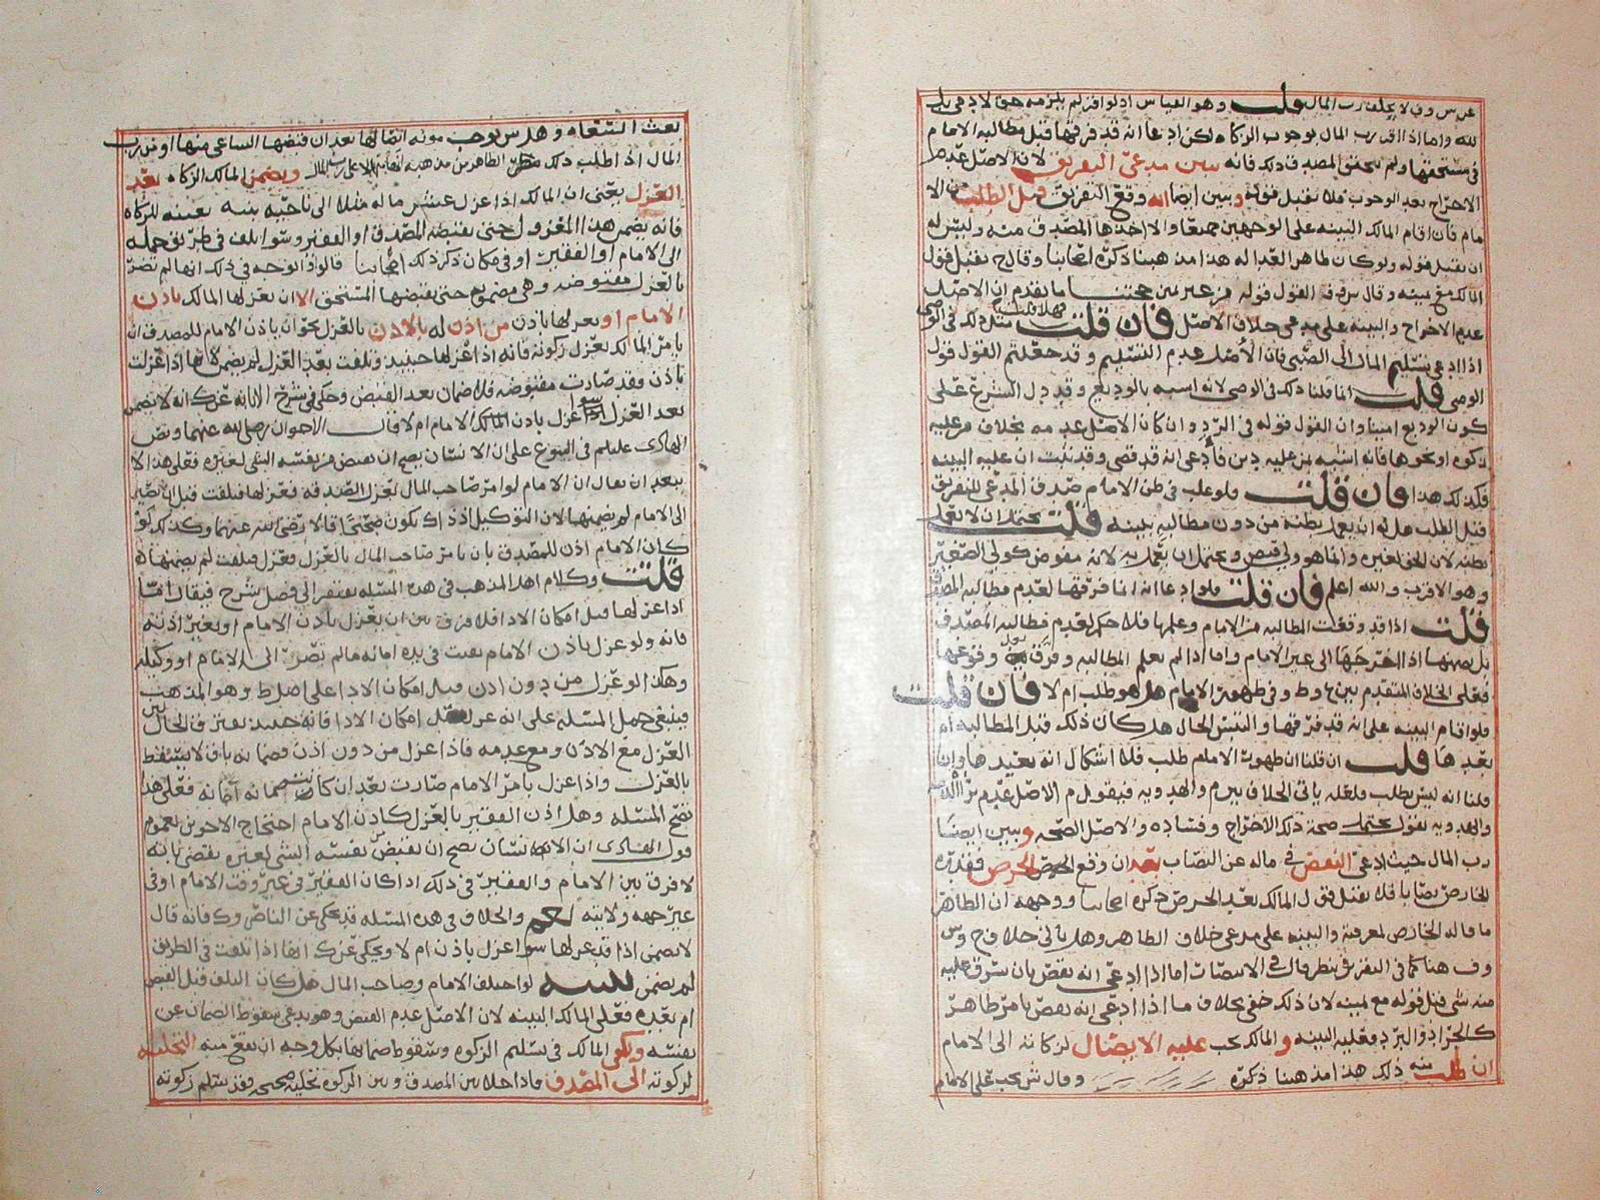 عرس وف لا يحلف رب المال قلت وهو القياس اذ لو اقر لم يلزمه حق لادمي بل
لله واما اذا اقر رب المال بوجوب الزكاه لكن ادعا انه قد فرقها قبل مطالبه الامام
في مستحقها ولم يتحقق المصدق ذلك فانه يبين مدعي التفريق لان الاصل عدم
الاخراج بعد الوجوب فلا يقبل قوله وبين ايضا انه وقع التفريق قبل الطلب من الا
مام فان اقام المالك البينه على الوجهين جميعا والا اخذها المصدق منه وليس له
ان يقبل قوله ولو كان ظاهر العداله هذا مذهبنا ذكره اصحابنا وقال ح يقبل قول
المالك مع يمينه وقال القول قوله من غير يمين حجتنا ما تقدم ان الاصل
عدم الاخراج والبينه على مدعي خلاف الاصل فان قلت فهلا قلت مثل ذلك في الوصي
اذا ادعى تسليم المال الى الصبي فان الاصل عدم التسليم وقد جعلتم القول قول
الوصي قلت انما قلنا ذلك في الوصي لانه اشبه بالوديع وقد دل الشرع على
كون الوديع امينا وان القول قوله في الرد وان كان الاصل عدمه بخلاف من عليه
زكوه او نحوها فانه اشبه بمن عليه دين فادعى انه قد قضى وقد ثبت ان عليه البينه
فكذلك هذا فان قلت فلو غلب في ظن الامام صدق المدعي للتفريق
قبل الطلب هل له ان يعمل بظنه من دون مطالبه ببينه قلت يحتمل ان لا يعمل
بظنه لان الحق لغيره وانما هو ولي قبض ويحتمل ان يعمل به لانه مفوض كولي الصغير
وهو الاقرب والله اعلم فان قلت فلو ادعا انه انما فرقها لعدم مطالبه المصدق
قلت اذا قد وقعت المطالبه من الامام وعلمها فلا حكم لعدم مطالبه المصدق
بل يضمنها اذا اخرجها الى غير الامام واما اذا لم يعلم المطالبه وفرق بعد وقوعها
فعلى الخلاف المتقدم بين وط وفي ظهور الامام هل هو طلب ام لا فان قلت
فلو اقام البينه على انه قد فرقها والتبس الحال هل كان ذلك قبل المطالبه ام
بعدها قلت ان قلنا ان ظهور الامام طلب فلا اشكال انه يعيدها وان
قلنا انه ليس بطلب فلعله ياتي الخلاف بين م والهدويه فيقول م الاصل عدم
والهدويه تقول يحتمل صحة ذلك الاخراج وفساده والاصل الصحه ويبين ايضا
رب المال حيث ادعى النقص في ماله عن النصاب بعد ان وقع الخرص فقدره
الخارص نصابا فلا يقبل قول المالك بعد الخرص ذكره اصحابنا ووجهه ان الظاهر
ما قاله الخارص لمعرفته والبينه على مدعي خلاف الظاهر وهل ياتي خلاف ح وس
وف هنا كما في التفريق ينظر قال في الانتصار اما اذا ادعى انه نقص بان سرق عليه
منه شي قبل قوله مع يمينه لان ذلك خفي بخلاف ما اذا ادعى انه نقص بامر ظاهر
كالجراد والبرد فعليه البينه والمالك يجب عليه الايصال لزكاته الى الامام
ان طلبت منه ذلك هذا مذهبنا ذكره وقال ش يجب على الامام
بعث السعاه وهل س يوجب مونه انتقالها بعد ان قبضها الساعي منها او من رب
المال اذا طلب ذلك الظاهر من مذهبه ويضمن المالك الزكاه بعد
العزل يعني ان المالك اذا عزل عشر ماله مثلا الى ناحيه بنيه تعيينه للزكاه
فانه يضمن هذا المعزول حتى يقبضه المصدق او الفقير وسوا تلف في طريق حمله
الى الامام او الفقير او في مكان ذكر ذلك اصحابنا قالوا والوجه في ذلك انها لم تصر
بالعزل مقبوضه وهي مضمونه حتى يقبضها المستحق الا ان يعزلها المالك باذن
الامام او يعزلها باذن من اذن له بالاذن بالعزل نحو ان ياذن الامام للمصدق ان
يامر المالك بعزل زكوته فانه اذا عزلها حينئذ وتلفت بعد العزل لم يضمن لانها اذا عزلت
باذن فقد صارت مقبوضه فلا ضمان بعد القبض وحكى في شرح الابانه عن ك انه لا يضمن
بعد العزل سوا عزل باذن المالك الامام ام لا قال الاخوان رضي الله عنهما ونص
الهادي عليلم في البيوع على ان الانسان يصح ان يقبض من نفسه الشي لغيره فعلى هذا لا
يبعد ان يقال ان الامام لو امر صاحب المال بعزل الصدقه فعزلها فتلفت قبل ان تصير
الى الامام لم يضمنها لان التوكيل اذ ذاك يكون صحيحا قالا رضي الله عنهما وكذلك لو
كان الامام اذن للمصدق بان يامر صاحب المال بالعزل وعزل فتلفت لم يضمنها
قلت وكلام اهل المذهب في هذه المسئله يفتقر الى فصل شرح فيقال اما
اذا عزلها قبل امكان الادا فلا فرق بين ان يعزل باذن الامام او بغير اذنه
فانه ولو عزل باذن الامام بقيت في يده امانه مالم تصر الى الامام او وكيله
وهكذا لو عزل من دون اذن قبل امكان الادا على اصل ط وهو المذهب
فينبغي حمل المسئله على انه عزل بعد امكان الادا فانه حينئذ يفترق الحال بين
العزل مع الاذن ومع عدمه فاذا عزل من دون اذن فضمانه باق لا يسقط
بالعزل واذا عزل بامر الامام صارت بعد ان كانت ضمانه امانه فعلى هذا
تصح المسئله وهل اذن الفقير بالعزل كاذن الامام احتجاج الاخوين بعموم
قول الهادي ان الانسان يصح ان يقبض من نفسه الشي لغيره يقضي بانه
لا فرق بين الامام والفقير في ذلك اذا كان الفقير في غير وقت الامام او في
غير جهه ولايته نعم والخلاف في هذه المسئله قد يحكى عن الناصر وك فانه قال
لا يضمن اذا قد عزلها سوا عزل باذن ام لا ويحكى عن ك ايضا اذا تلفت في الطريق
لم يضمن تنبيه لو اختلف الامام وصاحب المال هل كان التلف قبل القبض
ام بعده فعلى المالك البينه لان الاصل عدم القبض وهو يدعي سقوط الضمان عن
نفسه ويكفي المالك في تسليم الزكوه وسقوط ضمانها بكل وجه ان تقع منه التخليه
لزكوته الى المصدق فاذا خلا بين المصدق وبين الزكوه تخليه صحيحه فقد سلم زكوته